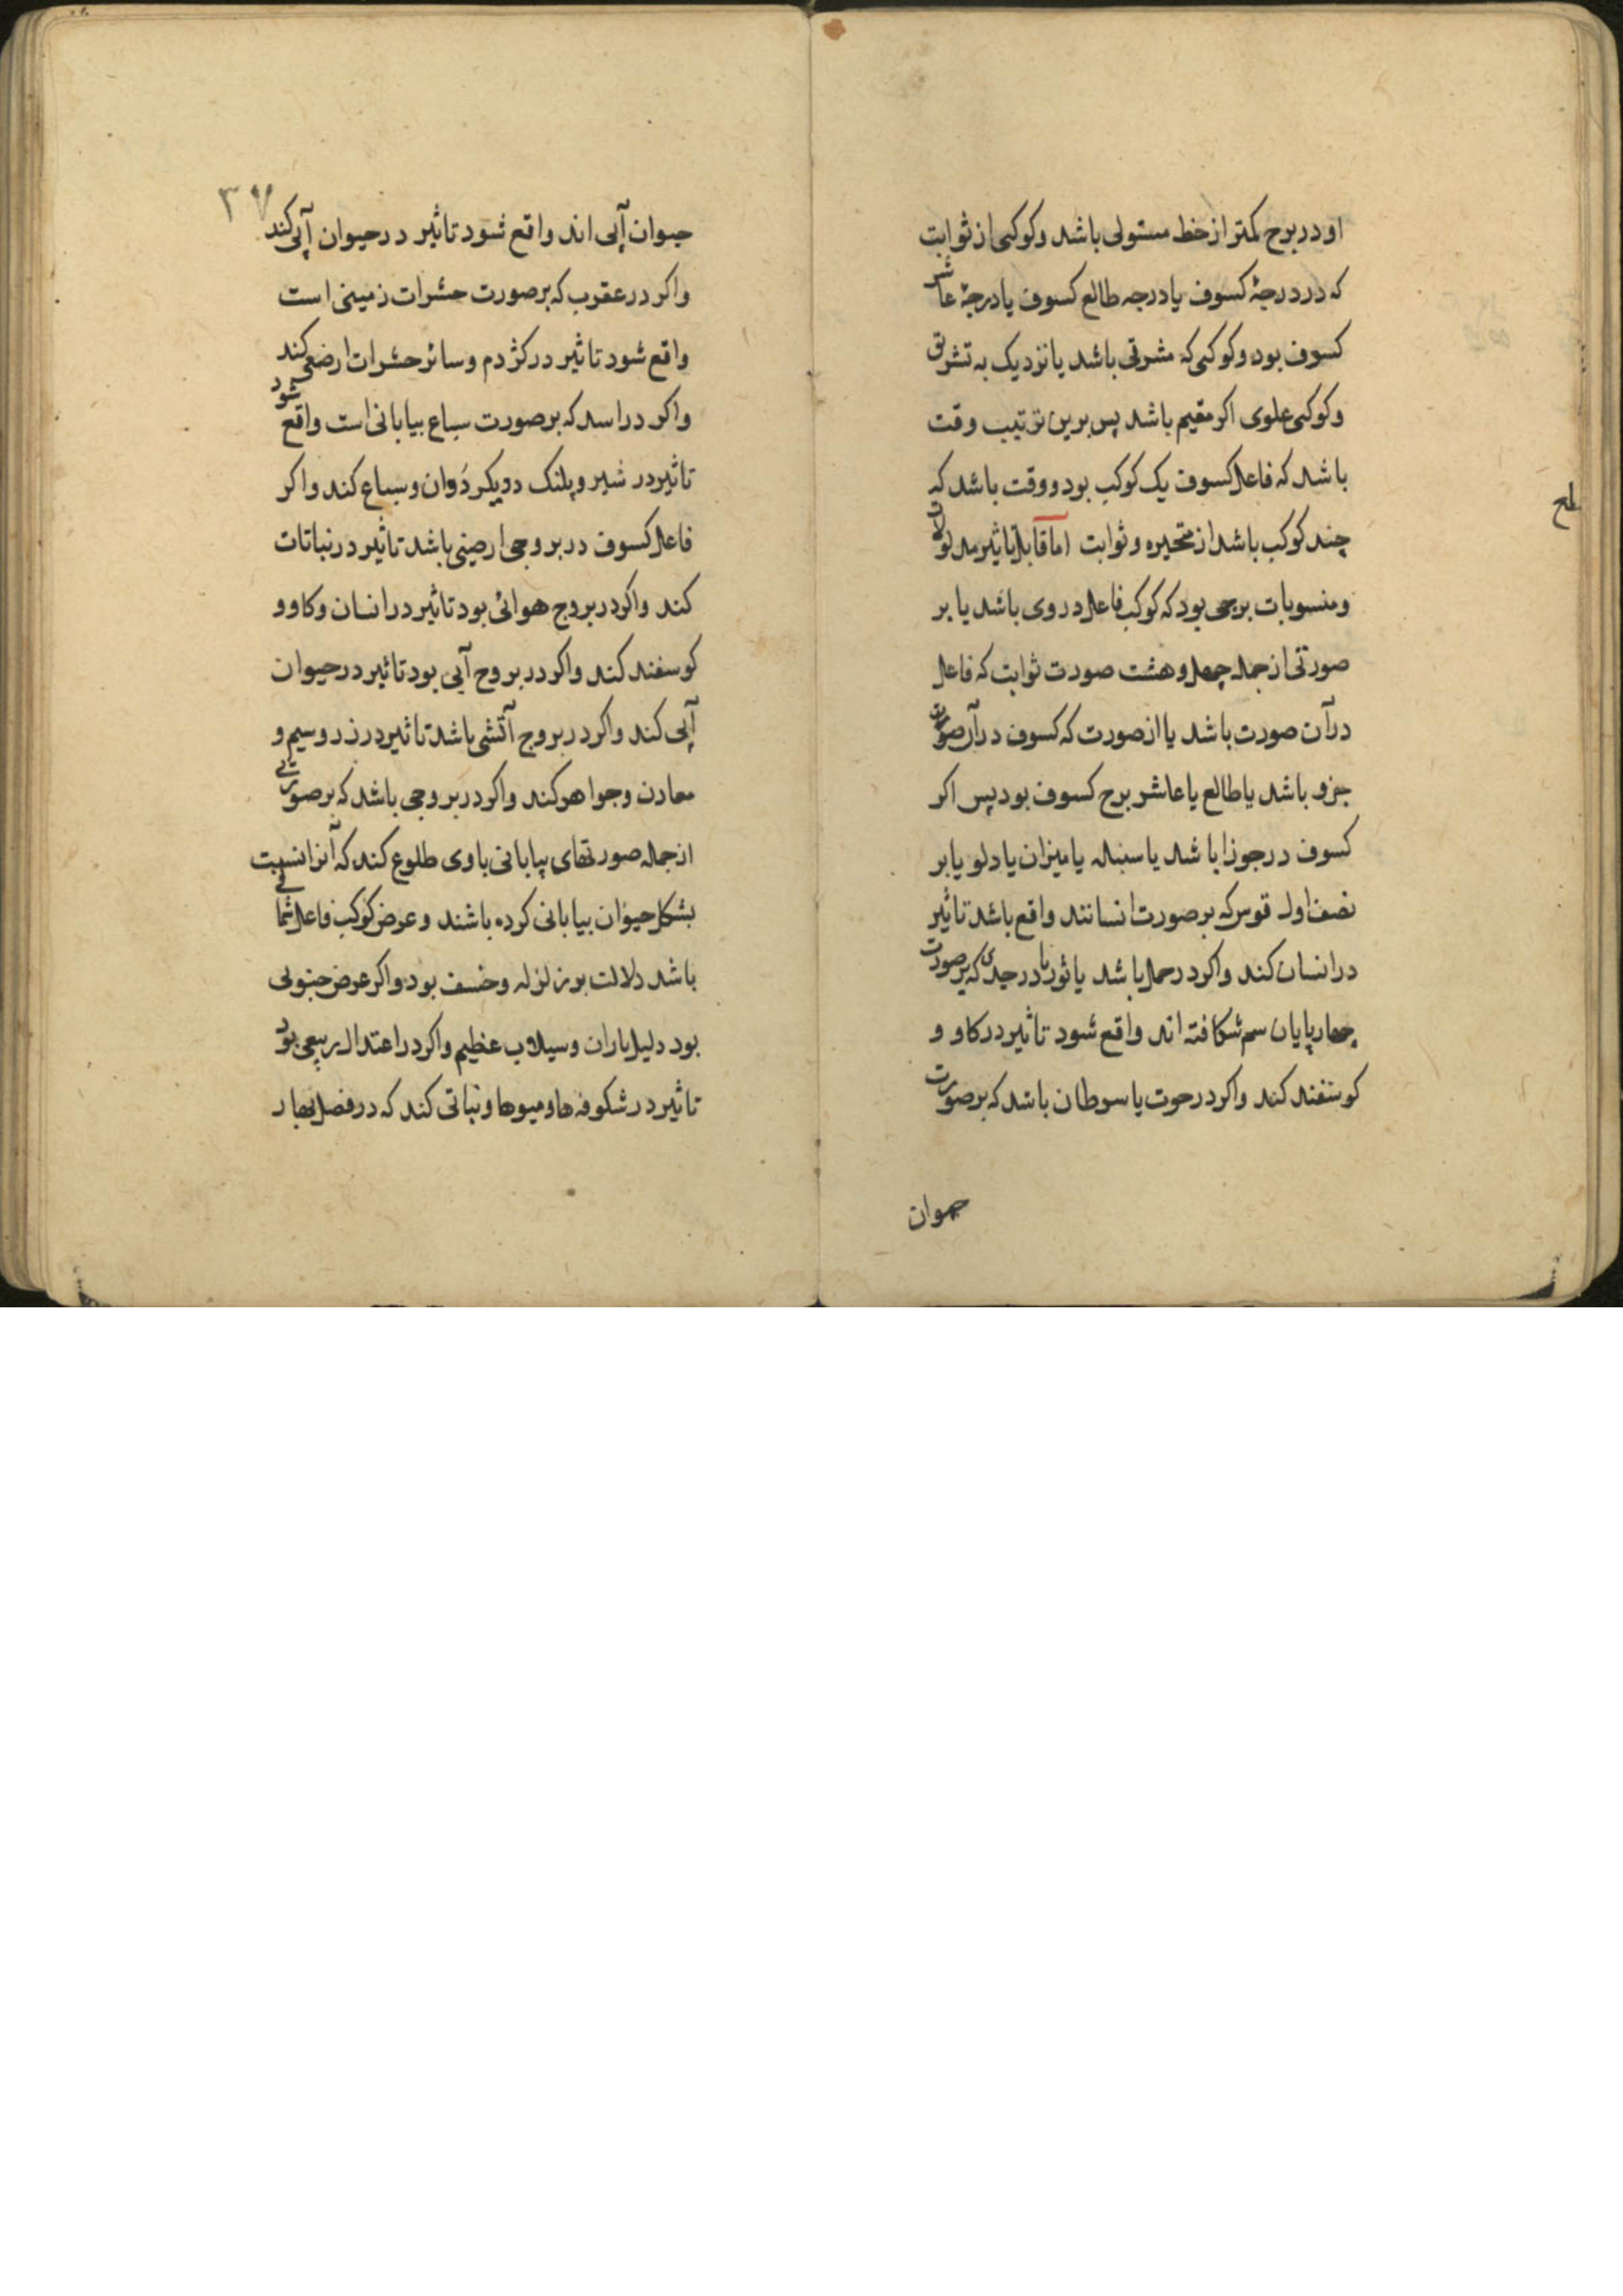 او در برج کمتر از حظ مستولی باشد و کوکبی از ثوابت
که در درجهٔ کسوف یا درجه طالع کسوف یا درجهٔ عاشر
کسوف بود و کوکبی که مشرقی باشد یا نزدیک به تشریق
و کوکبی علوی اکر مقیم باشد پس برین ترتیب وقت
باشد که فاعل کسوف یک کوکب بود و وقت باشد که
چند کوکب باشد از متحیره و ثوابت اما قابل تاثیر مدلولات
و منسوبات برجی بود که کوکب فاعل در وی باشد یا بر
صورتی از جمله چهل و هشت صورت ثوابت که فاعل
در آن صورت باشد یا از صورت که کسوف در آن صورت
جزو باشد یا طالع یا عاشر برج کسوف بود پس اکر
کسوف در جوزا باشد یا سنبله یا میزان یا دلو یا بر
نصف اول قوس که بر صورت انسانند واقع باشد تاثیر
در انسان کند و اکر در حمل باشد یا ثور یا در جدی که بر صورت
چهارپایان سم شکافته اند واقع شود تاثیر در کاو و
کوسفند کند و اکر در حوت یا سرطان باشد که بر صورت
حیوان
۳۷
حیوان آبی اند واقع شود تاثیر در حیوان آبی کند
و اکر در عقرب که بر صورت حشرات زمینی است
واقع شود تاثیر در کژدم و سائر حشرات ارضی کند
و اکر در اسد که بر صورت سباع بیابانی است واقع شود
تاثیر در شیر و پلنک و دیکر دوان و سباع کند و اکر
فاعل کسوف در بروجی ارضینی باشد تاثیر در نباتات
کند و اکر در بروج هوائی بود تاثیر در انسان و کاو و
کوسفند کند و اکر در بروج آبی بود تاثیر در حیوان
آبی کند و اکر در بروج آتشی باشد تاثیر در زر و سیم و
معادن و جواهر کند و اکر در بروجی باشد که بر صورتی
از جمله صورتهای بیابانی باوی طلوع کند که آنرا نسبت
بشکل حیوان بیابانی کرده باشند و عرض کوکب فاعل شمالی
باشد دلالت بر زلزله و خسف بود و اکر عرض جنوبی
بود دلیل باران و سیلاب عظیم و اکر در اعتدال ربیعی بود
تاثیر در شکوفه ها و میوها و نباتی کند که در فصل بهار